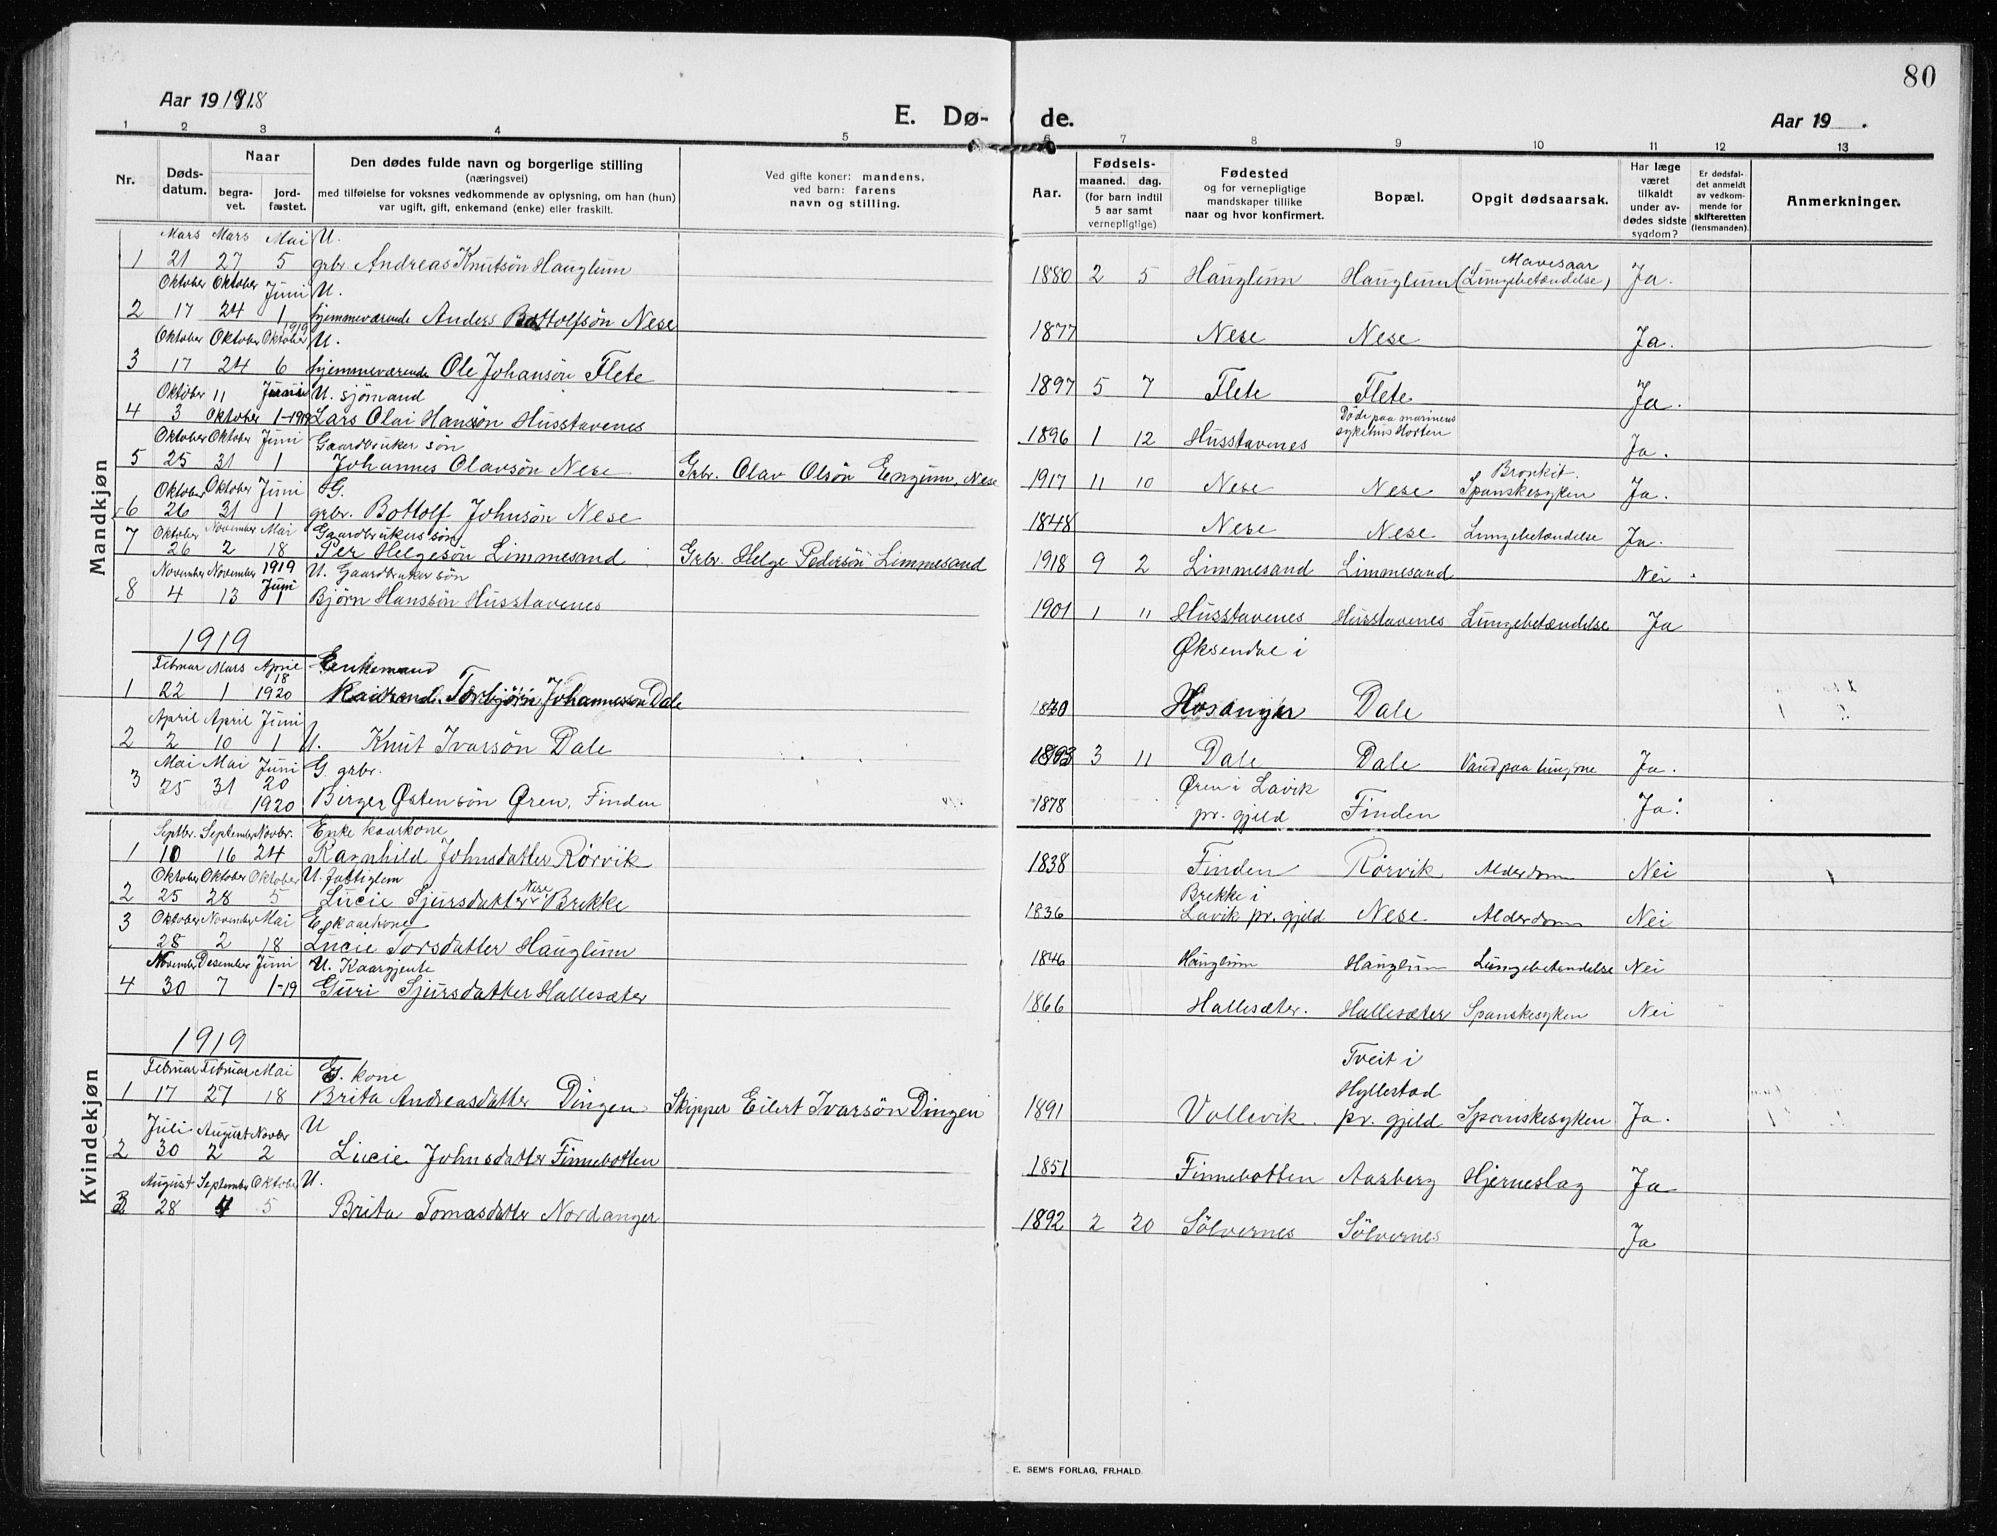 80
Aar 1918
E. Dø-
de.
Aar 19 .
1 2 3 4 5 6 7 8 9 10 11 12 13
Nr.
Døds-
datum.
Naar
begra-
vet.
jord-
fæstet.
Den dødes fulde navn og borgerlige stilling
(næringsvei)
med tilføielse for voksnes vedkommende av oplysning, om han (hun)
var ugift, gift, enkemand (enke) eller fraskilt.
Ved gifte koner: mandens,
ved barn: farens
navn og stilling.
Aar.
Fødsels-
maaned. dag.
(for barn indtil
5 aar samt
vernepligtige)
Fødested
og for vernepligtige
mandskaper tillike
naar og hvor konfirmert.
Bopæl.
Opgit dødsaarsak.
Har læge
været
tilkaldt
under av-
dødes sidste
sygdom?
Er dødsfal-
det anmeldt
av vedkom-
mende for
skifteretten
(lensmanden).
Anmerkninger.
Mandkjøn
Mars Mars Mai U.
1 21 27 5 grbr. Andreas Knutsøn Hauglum 1880 2 5 Hauglum Hauglum Mavesaar (Lungebetændelse) Ja.
Oktober Oktober Juni U.
2 17 24 1 hjemmeværende Anders Bottolfsøn Nese 1877 Nese Nese Ja.
Oktober Oktober 1919 Oktober U.
3 17 24 6 hjemmeværende Ole Johansøn Flete 1897 5 7 Flete Flete Ja.
Oktober 11 Juni U. sjømand
4 3 Oktober 1-1919 Lars Olai Hansøn Husstavenes 1896 1 12 Husstavenes Døde paa marinens sykehus Horten Ja.
Oktober Oktober Juni Gaardbruker søn
5 25 31 1 Johannes Olavsøn Nese Grbr. Olav Olsøn Engum, Nese 1917 11 10 Nese Nese Bronkit. Spanskesyken Ja.
Oktober Oktober Juni G.
6 26 31 1 grbr. Bottolf Johnsøn Nese 1848 Nese Nese Lungebetændelse Ja.
Oktober November Mai Gaardbrukers søn
7 26 2 18 Per Helgesøn Limmesand Grbr. Helge Pedersøn Limmesand 1918 9 2 Limmesand Limmesand Nei
November November 1919 Juni U. Gaardbruker søn
8 4 13 1 Bjørn Hanssøn Husstavenes 1901 1 11 Husstavenes Husstavenes Lungebetændelse Ja
1919
Februar Mars April 18 Enkemand
1 22 1 1920 Torbjørn Johannessøn Dale Øksendal i Hosanger Dale
April April Juni
2 2 10 1 U. Knut Ivarsøn Dale 3 11 Dale Dale Vand paa lungene Ja.
Mai Mai Juni G. grbr.
3 25 31 20 1920 Birger Østensøn Øren, Finden 1878 Øren i Lavik pr. gjeld Finden Ja.
Kvindekjøn
Septbr. September Novbr. Enke kaarkone
1 10 16 24 Ragnhild Johnsdatter Rørvik 1838 Finden Rørvik Alderdom Nei
Oktober Oktober Oktober U. fattiglem
2 25 28 5 Lucie Sjursdatter Nese Brekke 1836 Brekke i Lavik pr. gjeld Nese Alderdom Nei
Oktober November Mai E. kaarkone
3 28 2 18 Lucie Torsdatter Hauglum 1846 Hauglum Hauglum Lungebetændelse Nei
November Desember Juni U. Kaargjente
4 30 7 1-19 Guri Sjursdatter Hallesæter 1866 Hallesæter. Hallesæter Spanskesyken Nei
1919
Februar Februar Mai G. kone
1 17 27 18 Brita Andreasdatter Dingen Skipper Eilert Ivarsøn Dingen 1891 Vollevik Tveit i Hyllestad pr. gjeld Spanskesyken Ja.
Juli August Novbr U
2 30 2 2 Lucie Johnsdatter Finnebotten 1851 Finnebotten Aarberg Hjerneslag Ja
August September Oktober U.
3 28 4 5 Brita Tomasdatter Nordanger 1892 2 20 Sølvernes Sølvernes Ja
E. SEM'S FORLAG, FR.HALD.